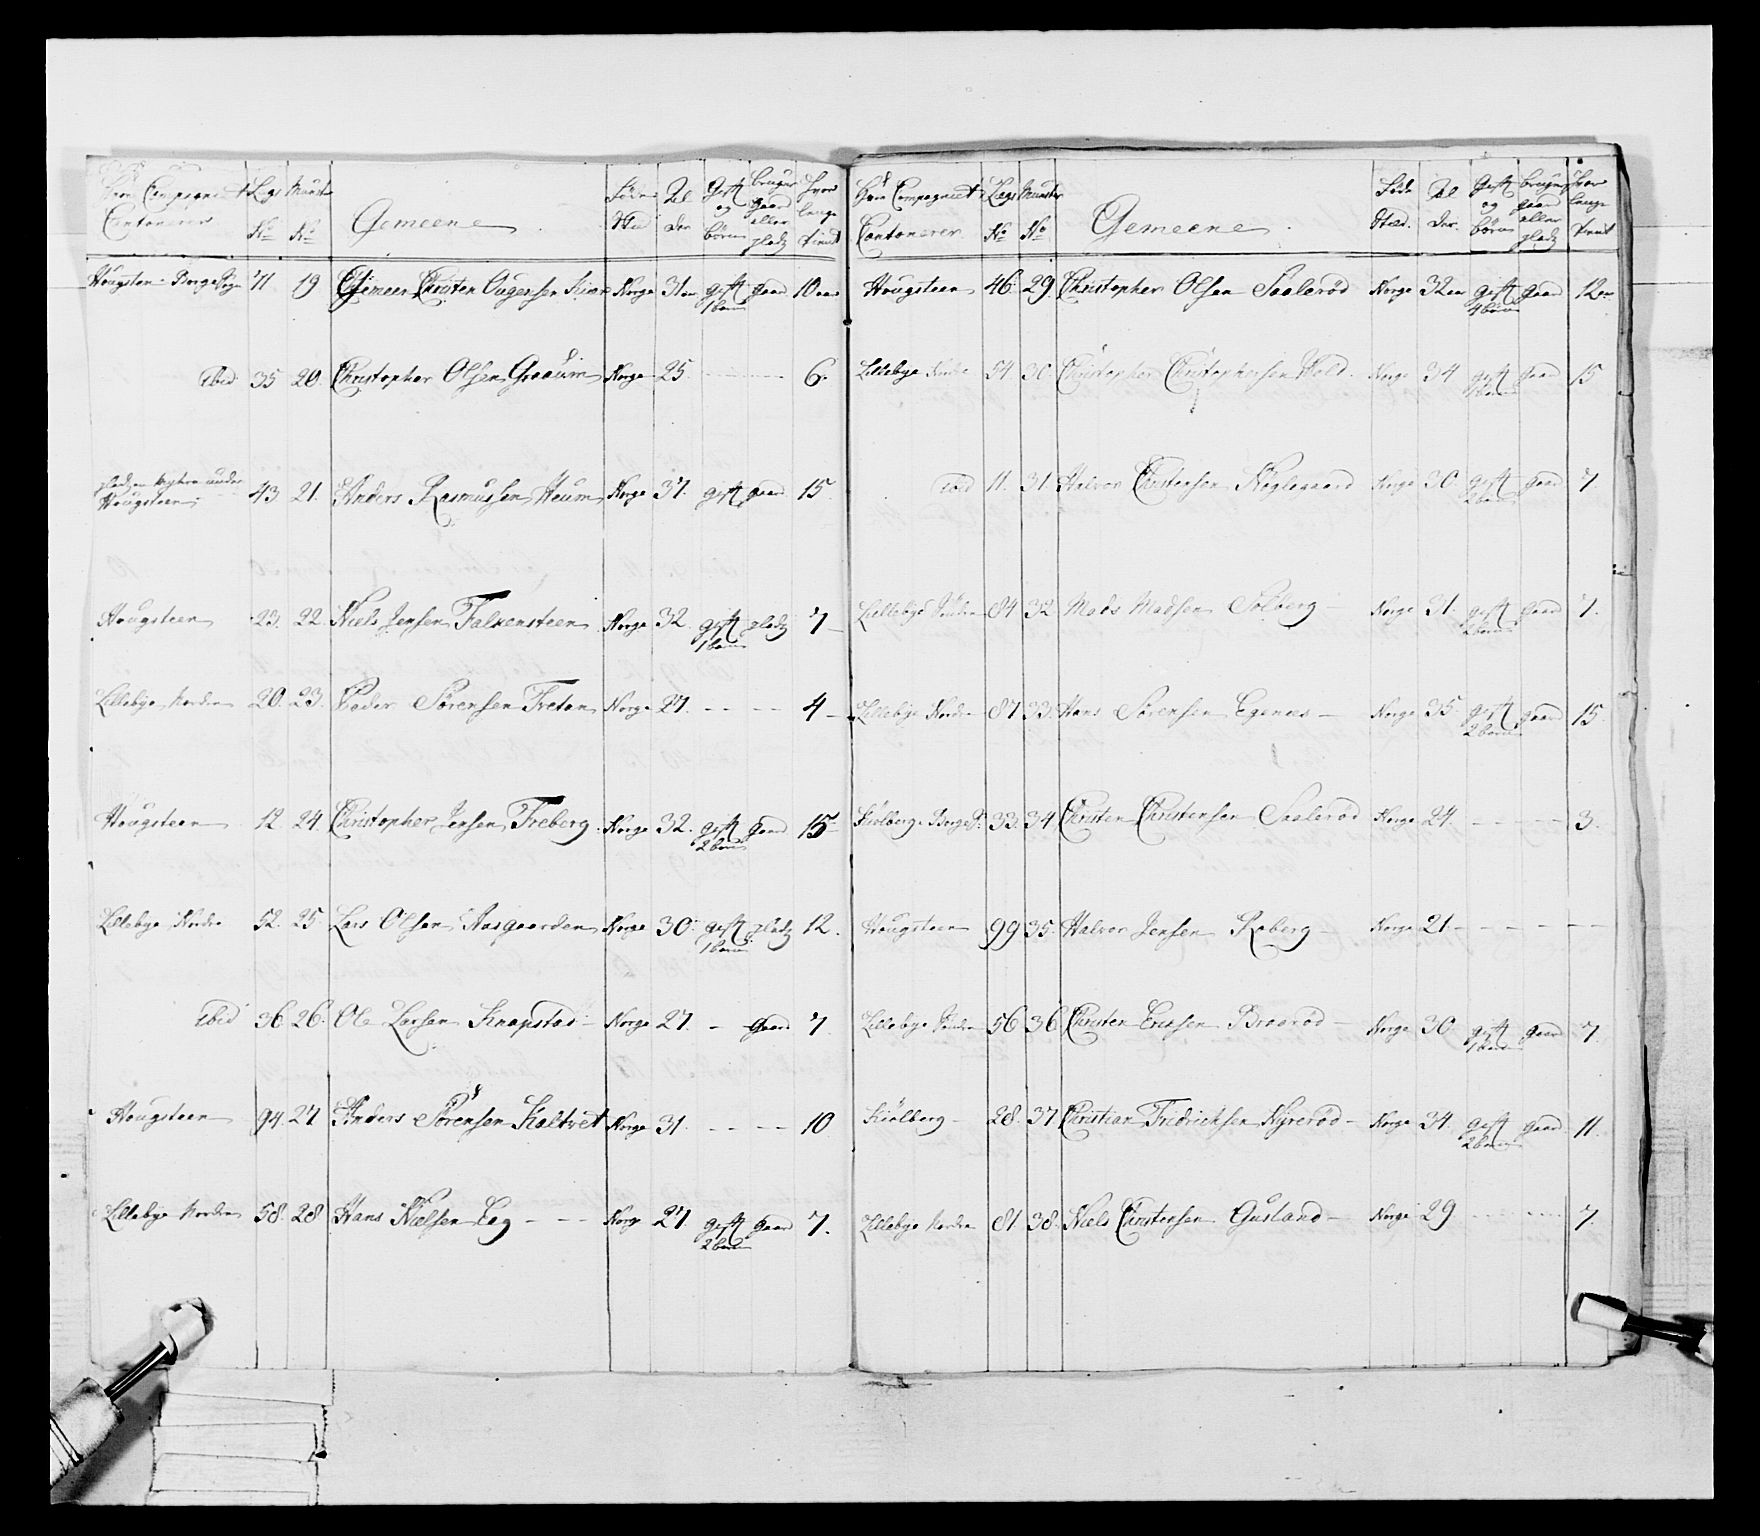 Compagniet Lægs Munster Gemeene Føde Al Gift bruger hvor
Cantonerer No No Sted der og gaard lenge
børn eller tient
pladz
Hougsteen Borge Sogn 71 19 Gemeen Christen Ougensen Norge 31 gift gaard 10
1 barn
Ibid 35 20 Christopher Olsen Graaum Norge 25 - - - 6
under
Hougsteen 43 21 Anders Rasmussen Heum Norge 37 gift gaard 15
Hougsteen 23 22 Niels Jensen Falkensteen Norge 32 gift pladz 7
1 barn
Lillebye Nordre 20 23 Peder Sørensen Treton Norge 27 - - - 4
Hougsteen 12 24 Christopher Jensen Freberg Norge 32 gift gaard 15
2 børn
Lillebye Nordre 52 25 Lars Olsen Aasgaarden Norge 30 gift pladz 12
1 barn
Ibid 36 26 Ole Larsen Knapstad Norge 27 - gaard 7
Hougsteen 94 27 Anders Sørensen Kaltvet Norge 31 - - - 10
Lillebye Nordre 58 28 Hans Nielsen Eeg - - - Norge 27 gift gaard 7
2 børn
Hvor Compagniet Lægs Munster Gemeene Føde Al Gift bruger hvor
Cantonerer No No Sted der og gaard lenge
børn eller tient
pladz
Hougsteen 46 29 Christopher Olsen Saalerød Norge 32 gift gaard 12
4 børn
Lillebye 54 30 Christopher Christophersen Norge 34 gift gaard 15
1 barn
Ibid 11 31 Halvor Christensen Nøglegaard Norge 30 gift gaard 7
2 børn
Lillebye 84 32 Mads Madsen Solberg Norge 31 gift gaard 7
2 børn
Lillebye Nordre 87 33 Hans Sørensen Egenæs Norge 35 gift gaard 15
2 børn
Kiølberg Borge 33 34 Christen Christensen Saalerød Norge 24 - - - 3
Hougsteen 99 35 Halvor Jensen Roberg Norge 21 - - - -
Lillebye 56 36 Christen Ericksen Braarød Norge 30 gift gaard 7
1 barn
Kiølberg 28 37 Christian Fridricksen Nyrerød Norge 34 gift gaard 11
2 børn
Lillebye Nordre 81 38 Niels Christensen Gusland Norge 29 - - - 7